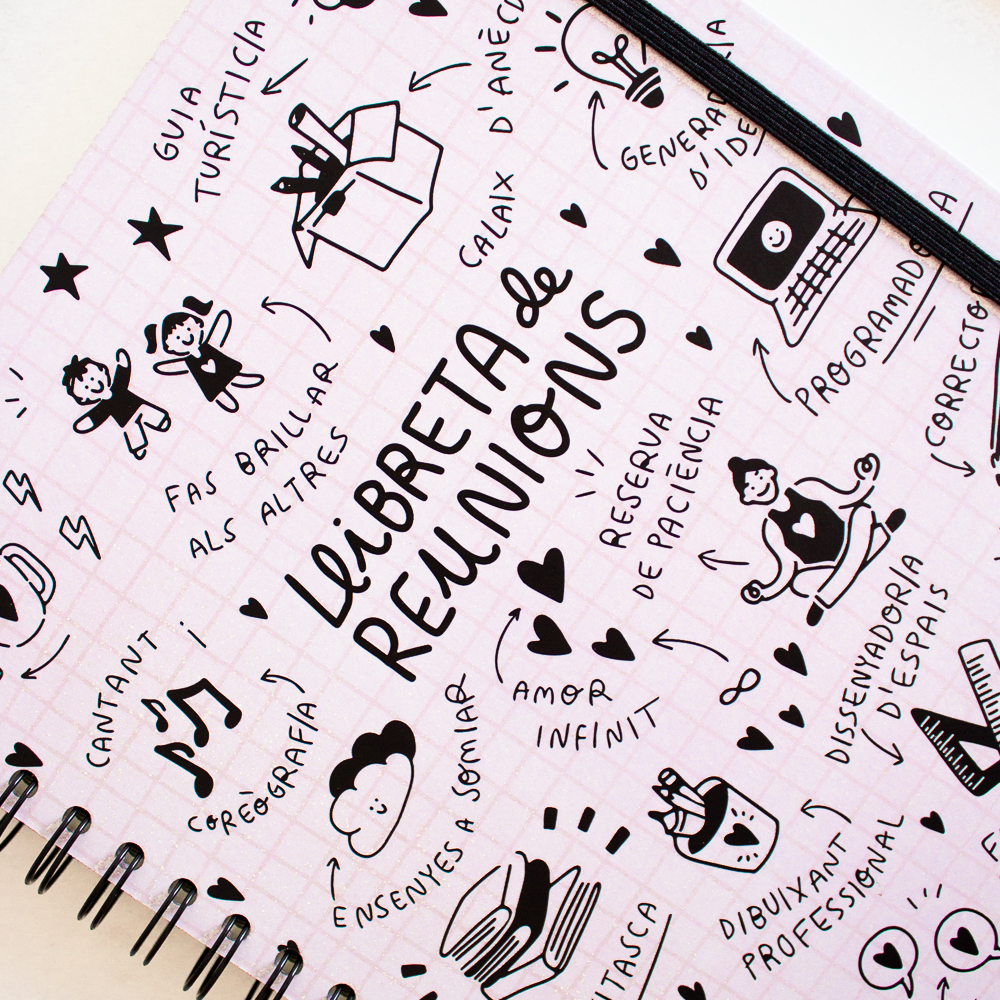 GUIA
TURÍSTIC/A
CALAIX
GENERA
D'IDE
PROGRAMADO
/A
CORRECTO
FAS BRILLAR
ALS ALTRES
LLIBRETA de
REUNIONS
RESERVA
DE PACIÈNCIA
CANTANT i
COREÒGRAF/A
ENSENYES A SOMIAR
AMOR
INFINIT
DISSENYADOR/A
D'ESPAIS
DIBUIXANT
PROFESSIONAL
ITASCA